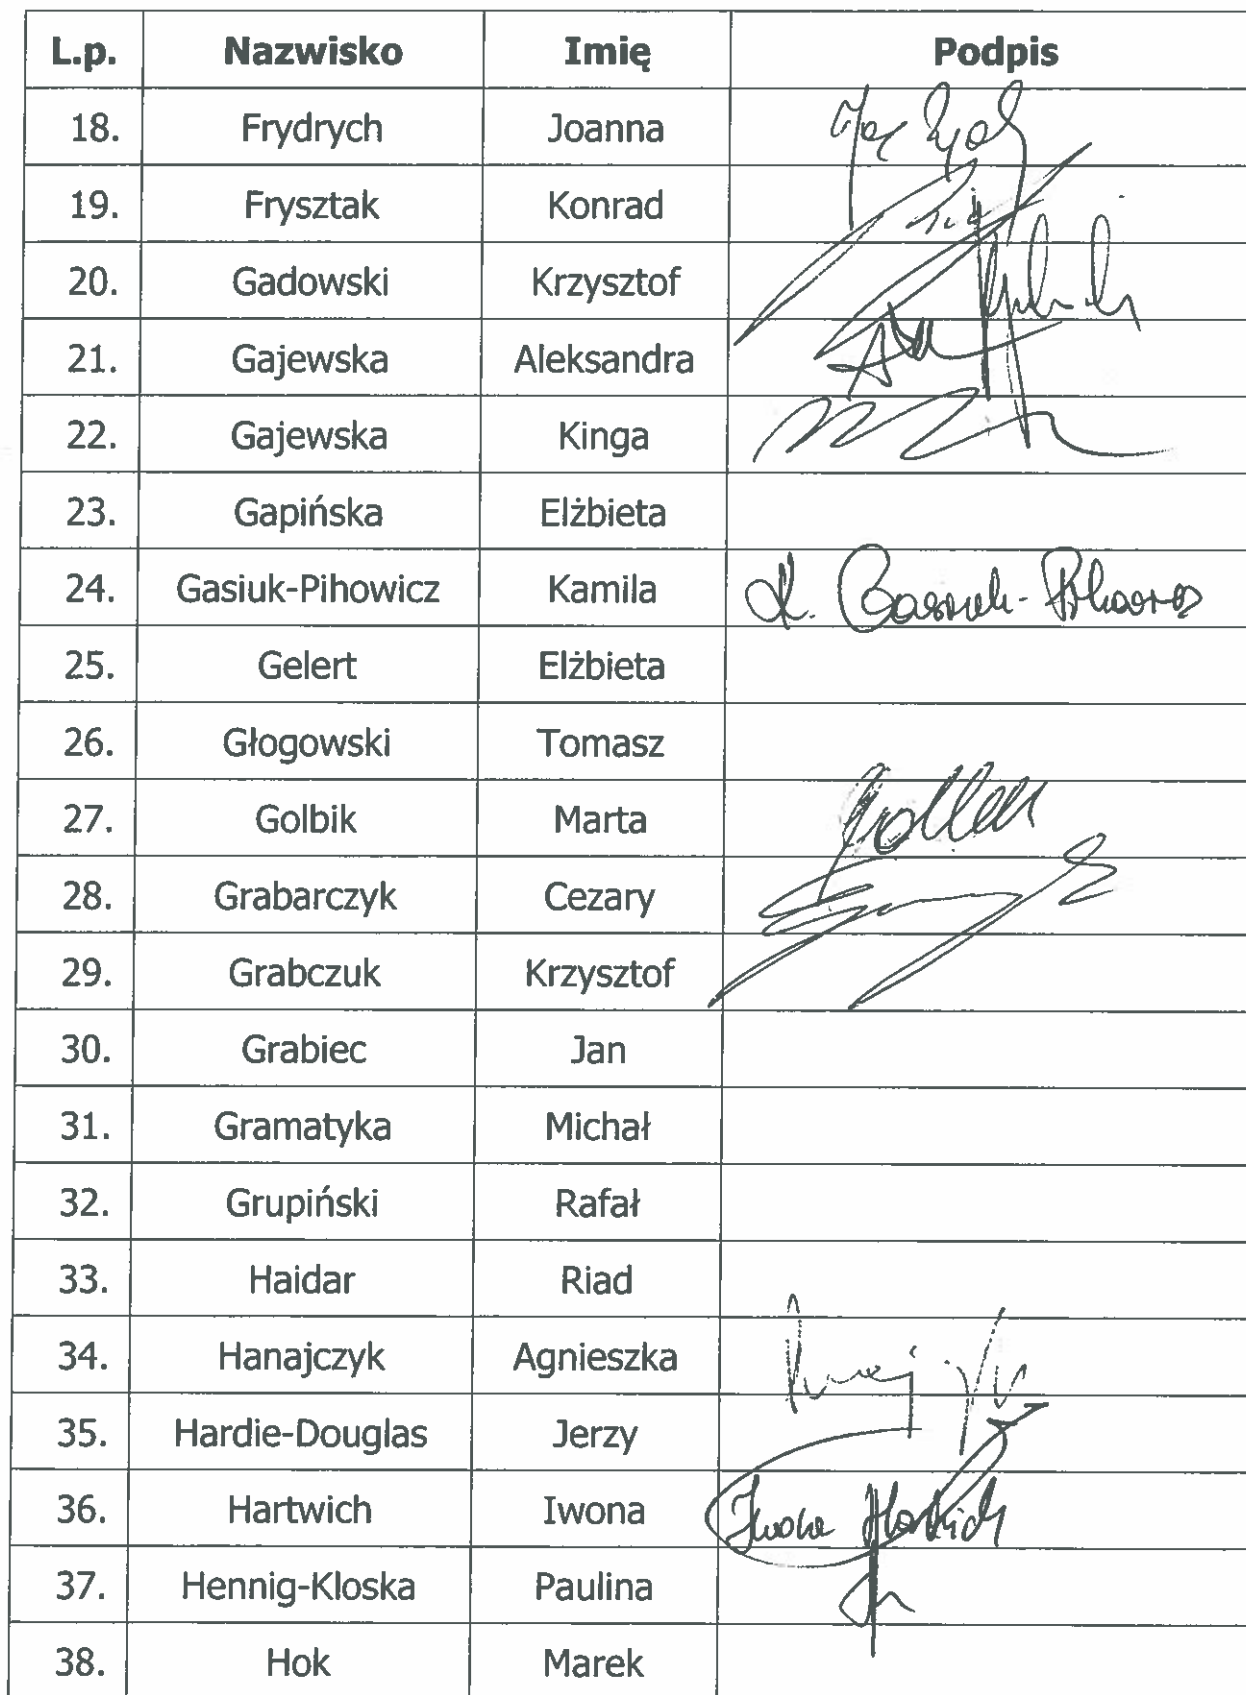 L.p. Nazwisko Imię Podpis
18. Frydrych Joanna
19. Frysztak Konrad
20. Gadowski Krzysztof
21. Gajewska Aleksandra
22. Gajewska Kinga
23. Gapińska Elżbieta
24. Gasiuk-Pihowicz Kamila K. Gasiuk-Pihowicz
25. Gelert Elżbieta
26. Głogowski Tomasz
27. Golbik Marta
28. Grabarczyk Cezary
29. Grabczuk Krzysztof
30. Grabiec Jan
31. Gramatyka Michał
32. Grupiński Rafał
33. Haidar Riad
34. Hanajczyk Agnieszka
35. Hardie-Douglas Jerzy
36. Hartwich Iwona Iwona Hartwich
37. Hennig-Kloska Paulina
38. Hok Marek